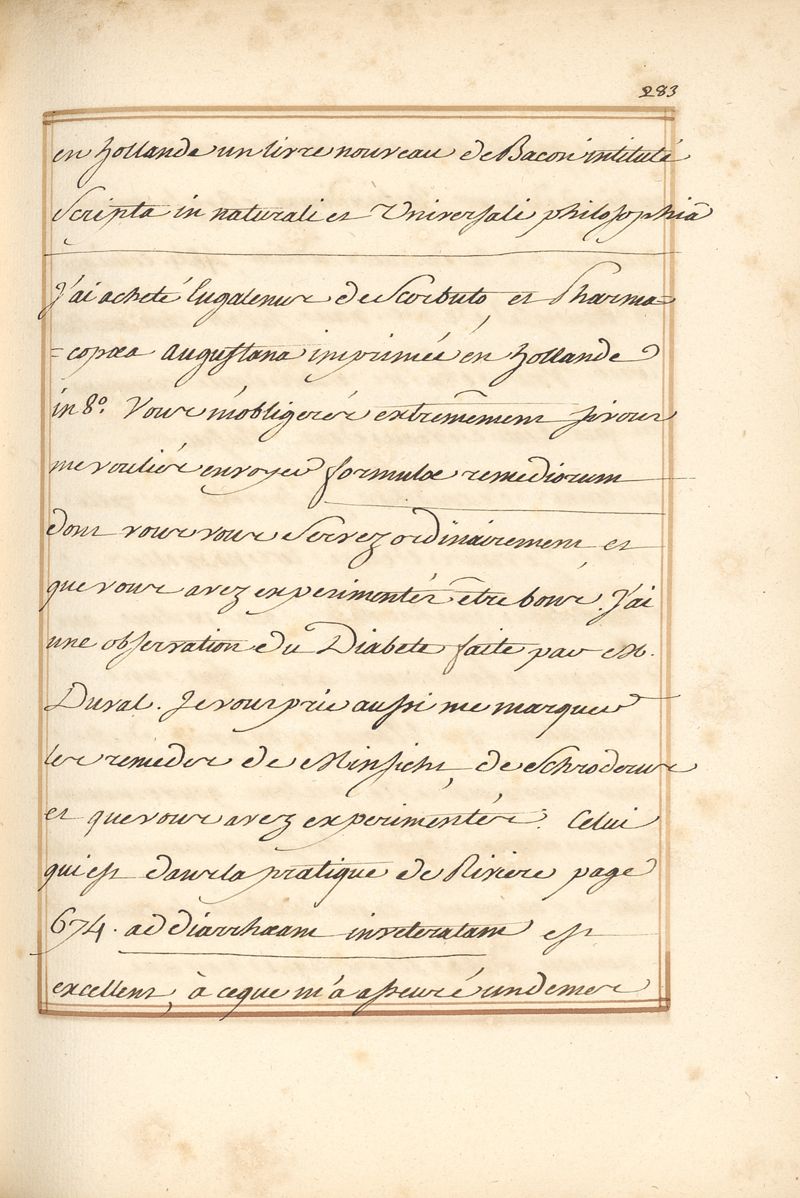 283
en hollande un livre nouveau de Bacon intitulé
Scripta in naturali et Universali philosophia
J'ai acheté Eugalenus de Scorbuto, et Pharma=
=copæa augustana imprimée en hollande
in 8º. Vous m'obligerés extrêmement si vous
me vouliés envoyer formulæ remediorum
dont vous vous servez ordinairement et
que vous avez experimentés être bons. J'ai
une observation du Diabete faite par M.
Duval. Je vous prie aussi me marquer
les remedes de Minsicht, de Schroderus
et que vous avez expérimentés. Celui
qui est dans la pratique de Riviere page
674. ad diarrhæam inveteratam est
excellent, à ce que m'a asseuré un de mes